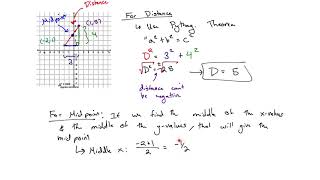 Distance
Midpoint
(1, 3)
4
3
For Distance
↳ Use Pythag. Theorem
"a² + b² = c
D² = 3² + 4²
√D² = √25
D = 5
distance can't
be negative
For Midpoint: If we find the middle of the x-values
& the middle of the y-values, that will give the
midpoint
↳ Middle x: -2+1/2 = -1/2